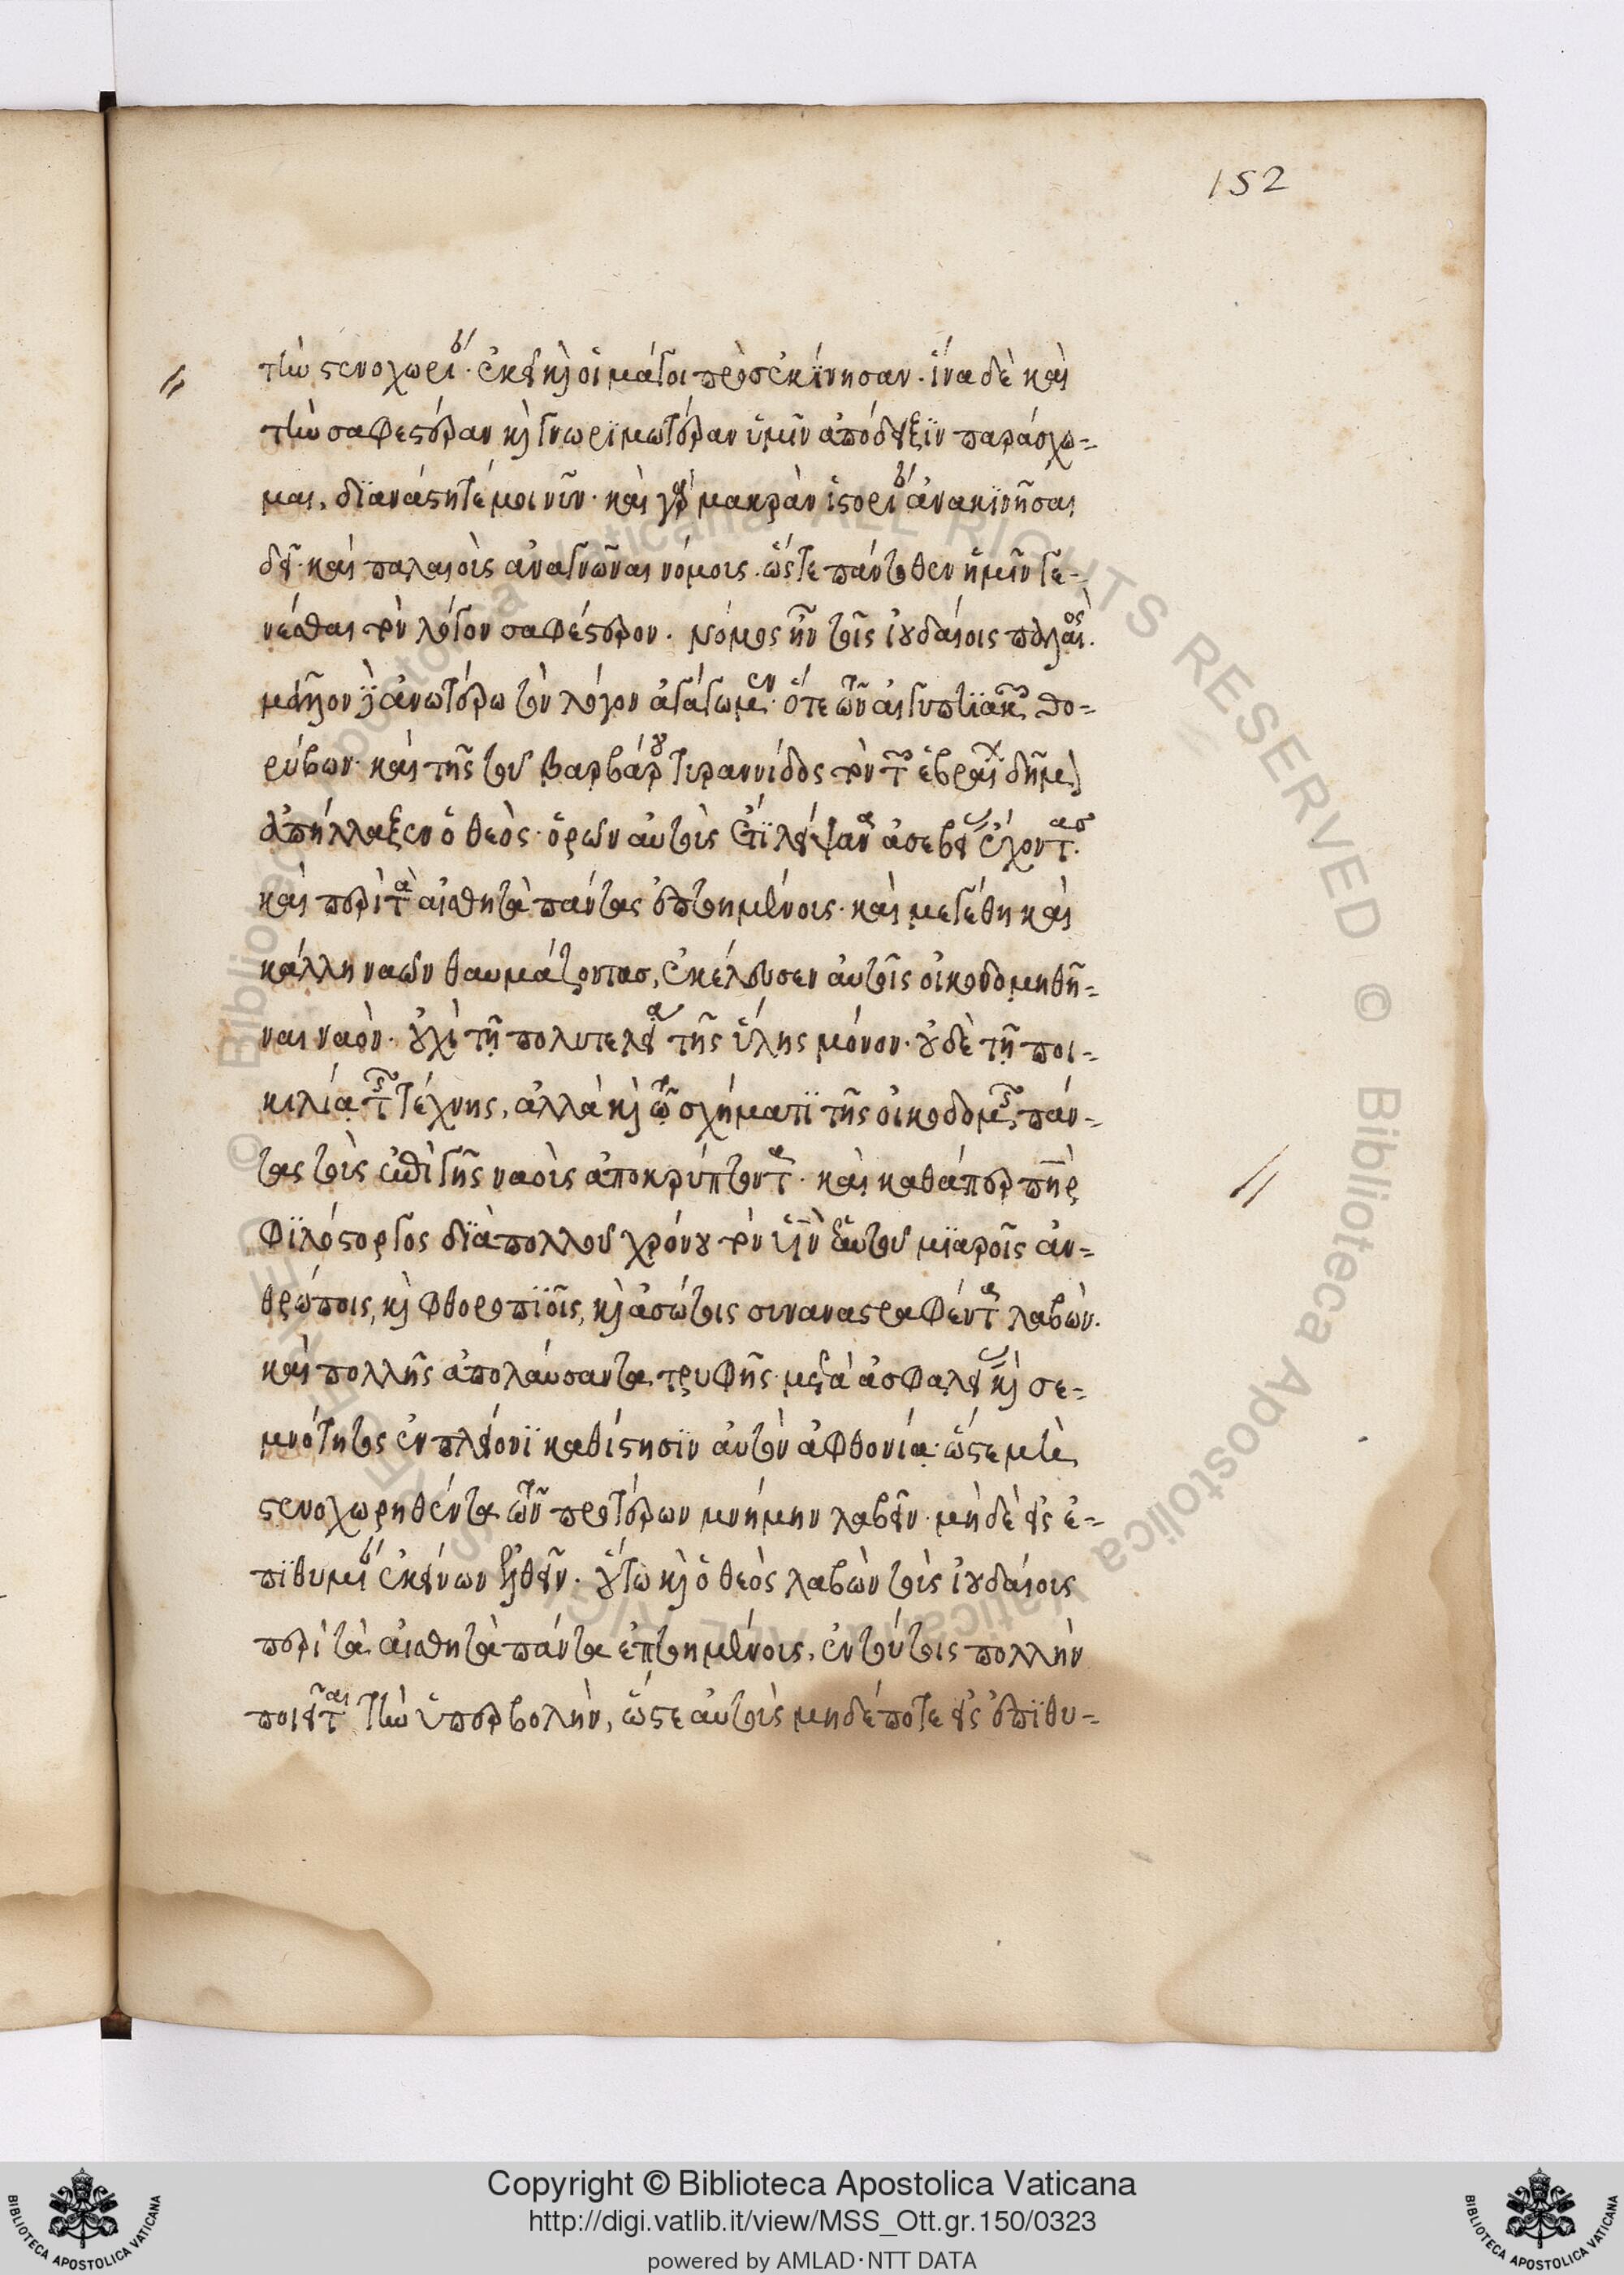 152
τὴν στενοχωρίαν. ἐκεῖ καὶ οἱ μάγοι προσεκύνησαν. ἵνα δὲ καὶ
τὴν σαφεστέραν καὶ γνωριμωτέραν ὑμῖν ἀπόδειξϊν παράσχω-
μαι, δϊανάστητέ μοι νῦν. καὶ γὰρ μακρὰν ἱστορίαν ἀνακινῆσαι
δεῖ. καὶ παλαιοὺς ἀναγνῶναι νόμους. ὥστε πάντοθεν ἡμῖν γε-
νέσθαι τὸν λόγον σαφέστερον. Νόμος ἦν τοῖς ἰουδαίοις παλαιός.
μᾶλλον δὲ ἀνωτέρω τὸν λόγον ἀγάγωμεν. ὅτε τῶν αἰγυπτϊακῶν θο-
ρύβων. καὶ τῆς τοῦ βαρβάρου τυραννίδος τὸν τῶν ἑβραίων δῆμον
ἀπήλλαξεν ὁ θεὸς. ὁρῶν αὐτοὺς ἔτϊ λείψανα ἀσεβείας ἔχοντας.
καὶ περὶ τὰ αἰσθητὰ πάντας ἐπτοημένους. καὶ μεγέθη καὶ
κάλλη ναῶν θαυμάζοντασ, ἐκέλευσεν αὐτοῖς οἰκοδομηθῆ-
ναι ναὸν. οὐχὶ τῇ πολυτελείᾳ τῆς ὕλης μόνον. οὐδὲ τῇ ποι-
κιλίᾳ τῆς τέχνης, ἀλλὰ καὶ τῷ σχήματϊ τῆς οἰκοδομῆς πάν-
τας τοὺς ἐπὶ γῆς ναοὺς ἀποκρύπτοντα. καὶ καθάπερ πὴρ
φϊλόστοργος δϊὰ πολλοῦ χρόνου τὸν ὑϊὸν ἑαυτοῦ μϊαροῖς ἀν-
θρώποις, καὶ φθοροποιοῖς, καὶ ἀσώτοις συναναστραφέντα λαβὼν.
καὶ πολλῆς ἀπολαύσαντα τρυφῆς. μετὰ ἀσφαλείας καὶ σε-
μνότητος ἐν πλείονϊ καθίστησϊν αὐτὸν ἀφθονίᾳ. ὥστε μὴ
στενοχωρηθέντα τῶν προτέρων μνήμην λαβεῖν. μὴ δὲ εἰς ἐ-
πϊθυμίαν ἐκείνων ἐλθεῖν. οὕτω καὶ ὁ θεὸς λαβὼν τοὺς ἰουδαίους
περὶ τὰ αἰσθητὰ πάντα ἐπτοημένους, ἐν τούτοις πολλὴν
ποιεῖται τὴν ὑπερβολὴν, ὥστε αὐτοὺς μηδέποτε εἰς ἐπϊθυ-
Copyright © Biblioteca Apostolica Vaticana
http://digi.vatlib.it/view/MSS_Ott.gr.150/0323
powered by AMLAD·NTT DATA